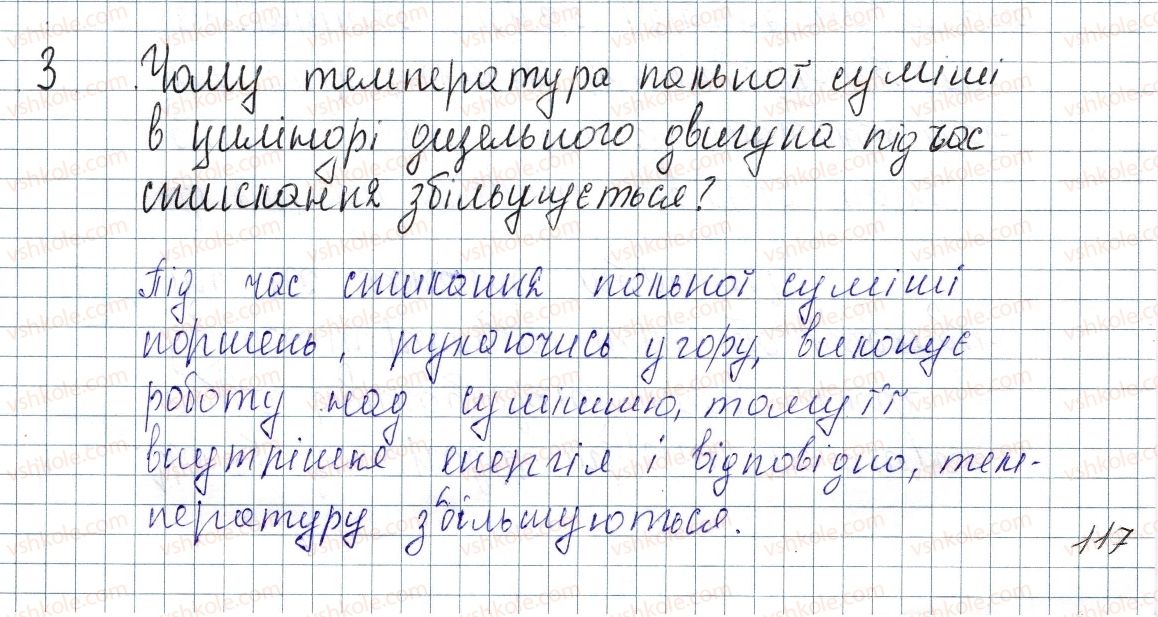 3 Чому температура пальної суміші
в циліндрі дизельного двигуна під час
стискання збільшується?
Під час стикання пальної суміші
поршень, рухаючись угору, виконує
роботу над сумішшю, тому її
внутрішня енергія і відповідно, тем-
пературу збільшуються.
117
vshkole.com